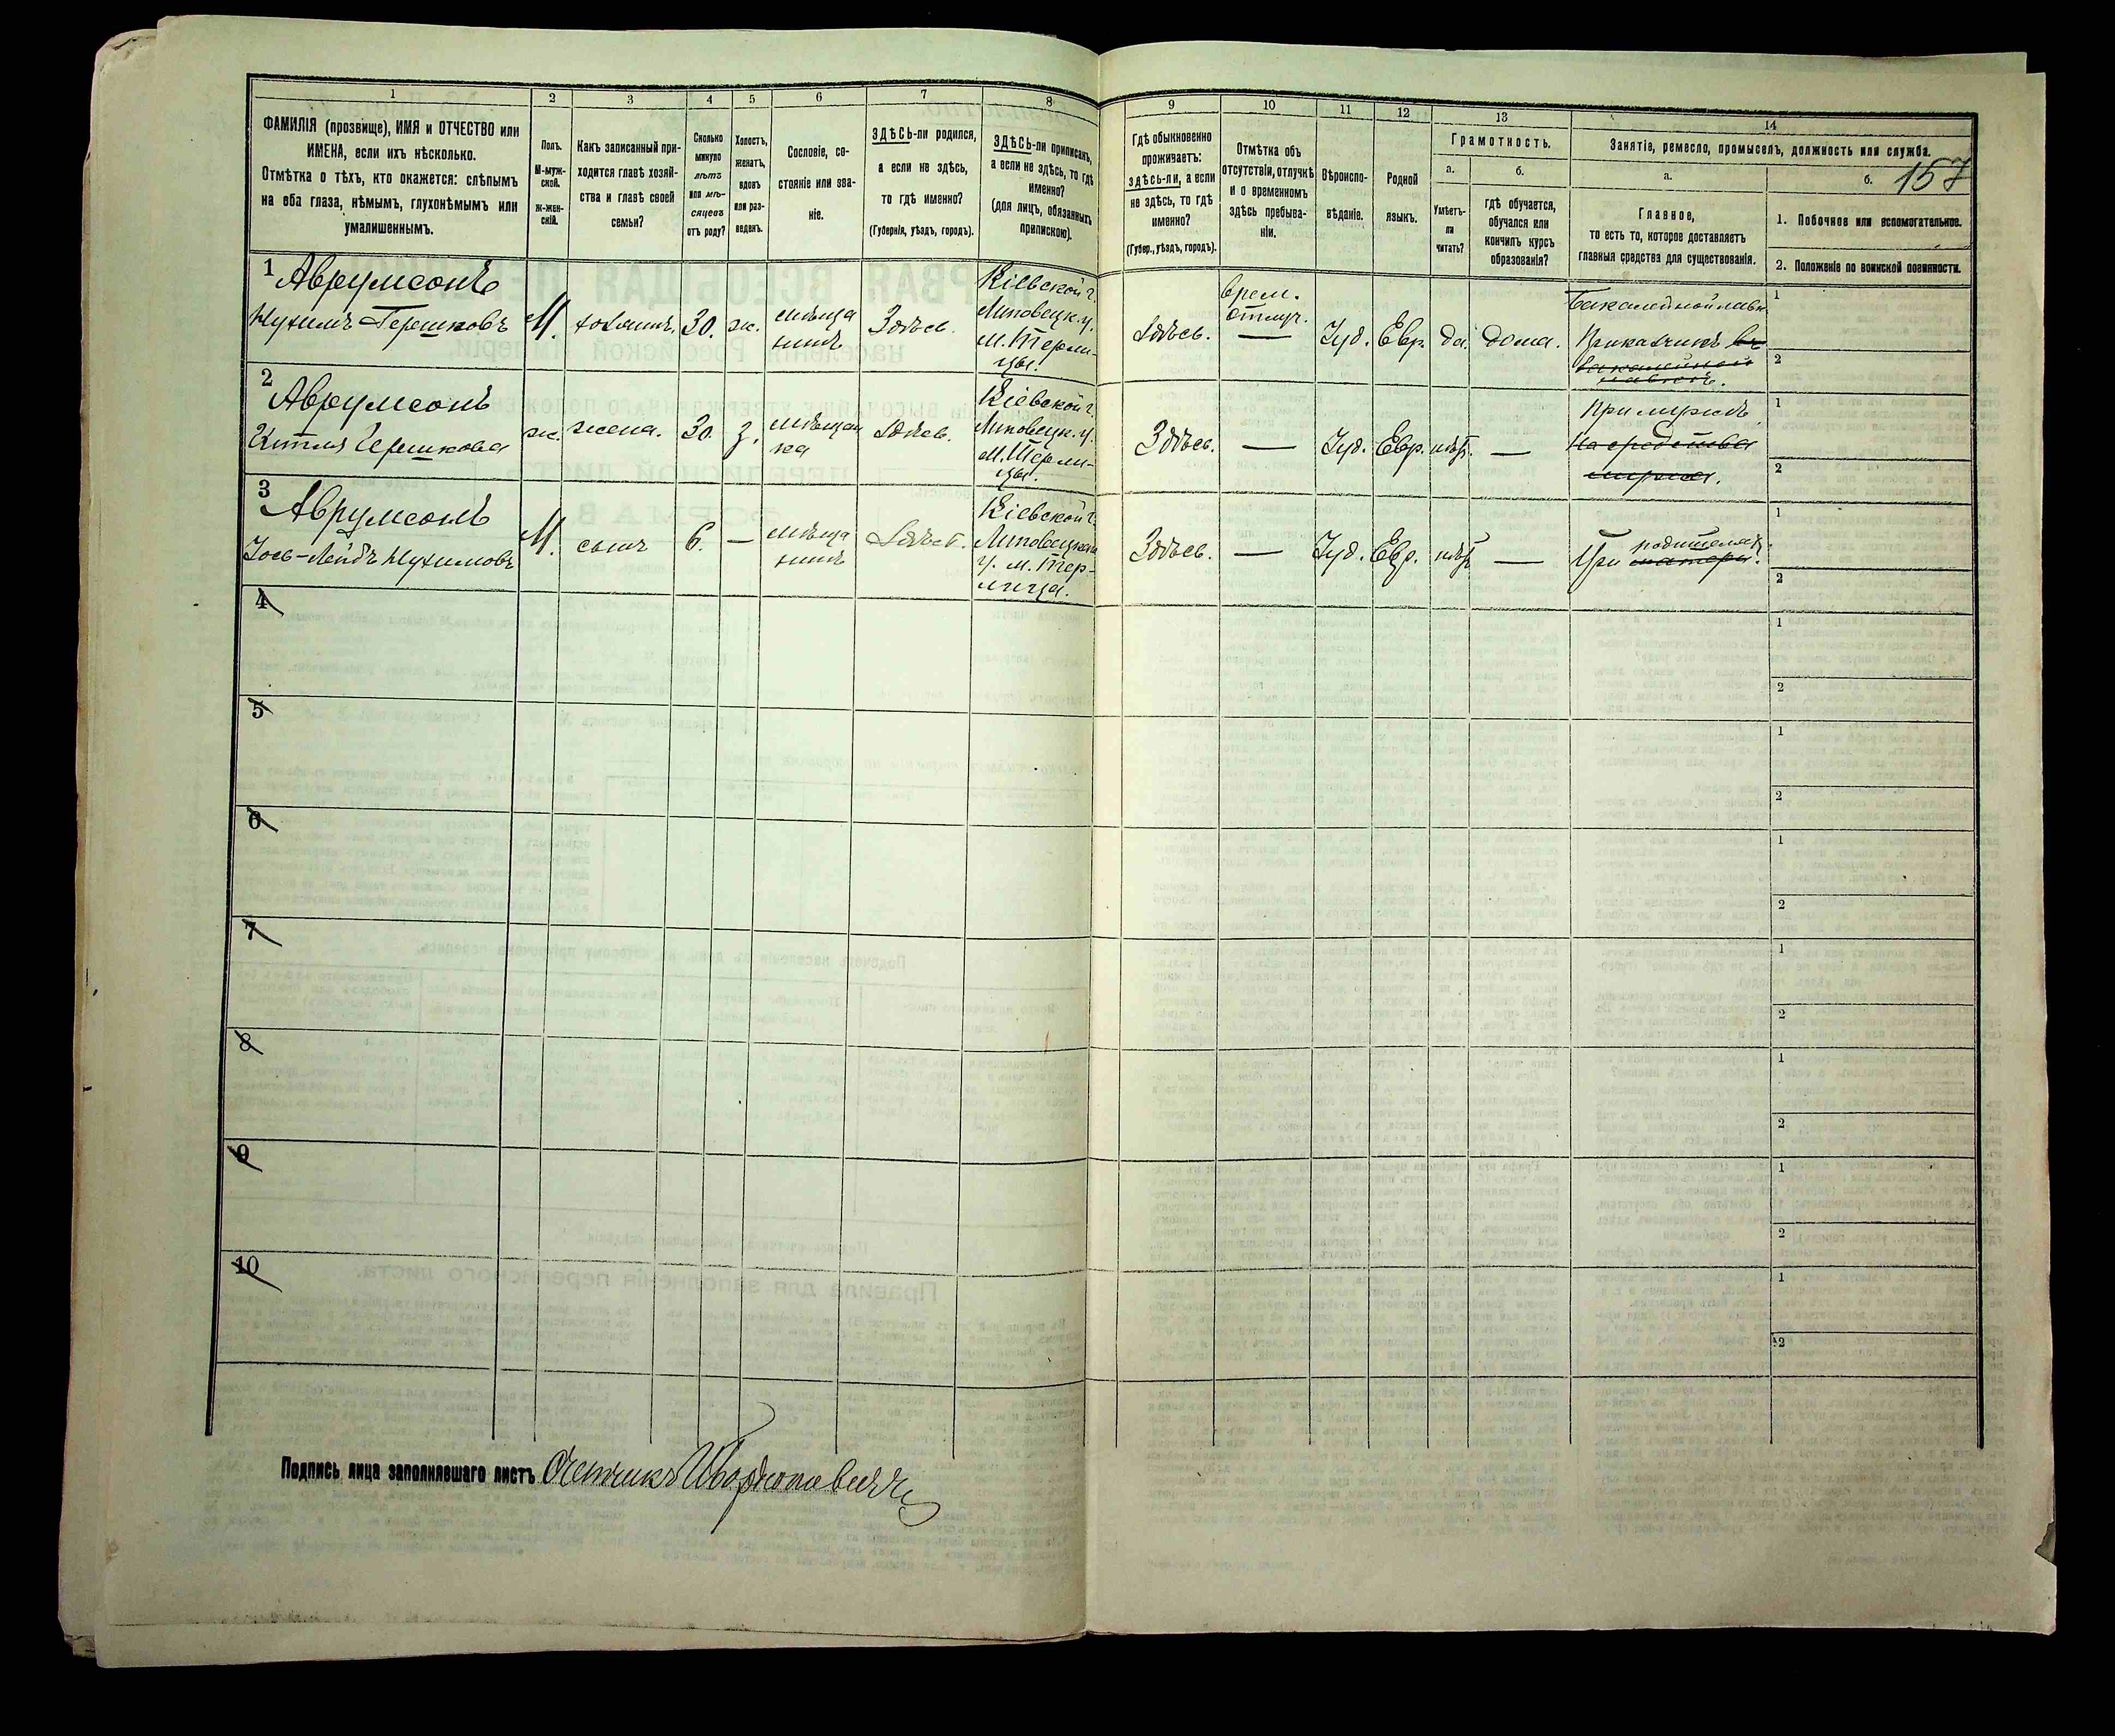 1
2
3
4
5
6
7
8
9
10
11
12
13
14
157
ФАМИЛІЯ (прозвище), ИМЯ и ОТЧЕСТВО или
ИМЕНА, если ихъ нѣсколько.
Отмѣтка о тѣхъ, кто окажется: слѣпымъ
на оба глаза, нѣмымъ, глухонѣмымъ или
умалишеннымъ.
Полъ.
М-муж-
ской.
Ж-жен-
скій.
Какъ записанный при-
ходится главѣ хозяй-
ства и главѣ своей
семьи?
Сколько
минуло
лѣтъ
или мѣ-
сяцевъ
отъ роду?
Холостъ,
женатъ,
вдовъ
или раз-
веденъ.
Сословіе, со-
стояніе или зва-
ніе.
ЗДѢСЬ-ли родился,
а если не здѣсь,
то гдѣ именно?
(Губернія, уѣздъ, городъ).
ЗДѢСЬ-ли приписанъ,
а если не здѣсь, то гдѣ
именно?
(для лицъ, обязанныхъ
припискою).
Гдѣ обыкновенно
проживаетъ:
здѣсь-ли, а если
не здѣсь, то гдѣ
именно?
(Губер., уѣздъ, городъ).
Отмѣтка объ
отсутствіи, отлучкѣ
и о временномъ
здѣсь пребыва-
ніи.
Вѣроиспо-
вѣданіе.
Родной
языкъ.
Грамотность.
а.
Умѣетъ-
ли
читать?
б.
гдѣ обучается,
обучался или
кончилъ курсъ
образованія?
Занятіе, ремесло, промыселъ, должность или служба.
а.
Главное,
то есть то, которое доставляетъ
главныя средства для существованія.
б.
1. Побочное или вспомогательное.
2. Положеніе по воинской повинности.
1
Аврумсонъ
Нухимъ Гершковъ
М.
хозяинъ.
30.
ж.
мѣща
нинъ
Здѣсь.
Кіевской г.
Липовецк. у.
м. Терли-
цы.
Здѣсь.
врем.
отлуч.
—
Іуд.
Евр.
да.
дома.
Бакалейной лавк.
Приказчикъ въ
бакалейной
лавкѣ.
1
2
2
Аврумсонъ
Ител Гершкова
ж.
жена.
30.
з.
мѣщан
ка
Здѣсь.
Кіевской г.
Липовецк. у.
м. Терли-
цы.
Здѣсь.
—
Іуд.
Евр.
нѣт.
—
При мужѣ
На средства
мужа.
1
2
3
Аврумсонъ
Іось-Лейбъ Нухимовъ
М.
сынъ
6.
—
мѣща
нинъ
Здѣсь.
Кіевской г.
Липовецкаго
у. м. Тер-
лица.
Здѣсь.
—
Іуд.
Евр.
нѣт
—
родителях.
При матери.
1
2
4
1
2
5
1
2
6
1
2
7
1
2
8
1
2
9
1
2
10
1
2
Подпись лица заполнявшаго листъ Счетчикъ